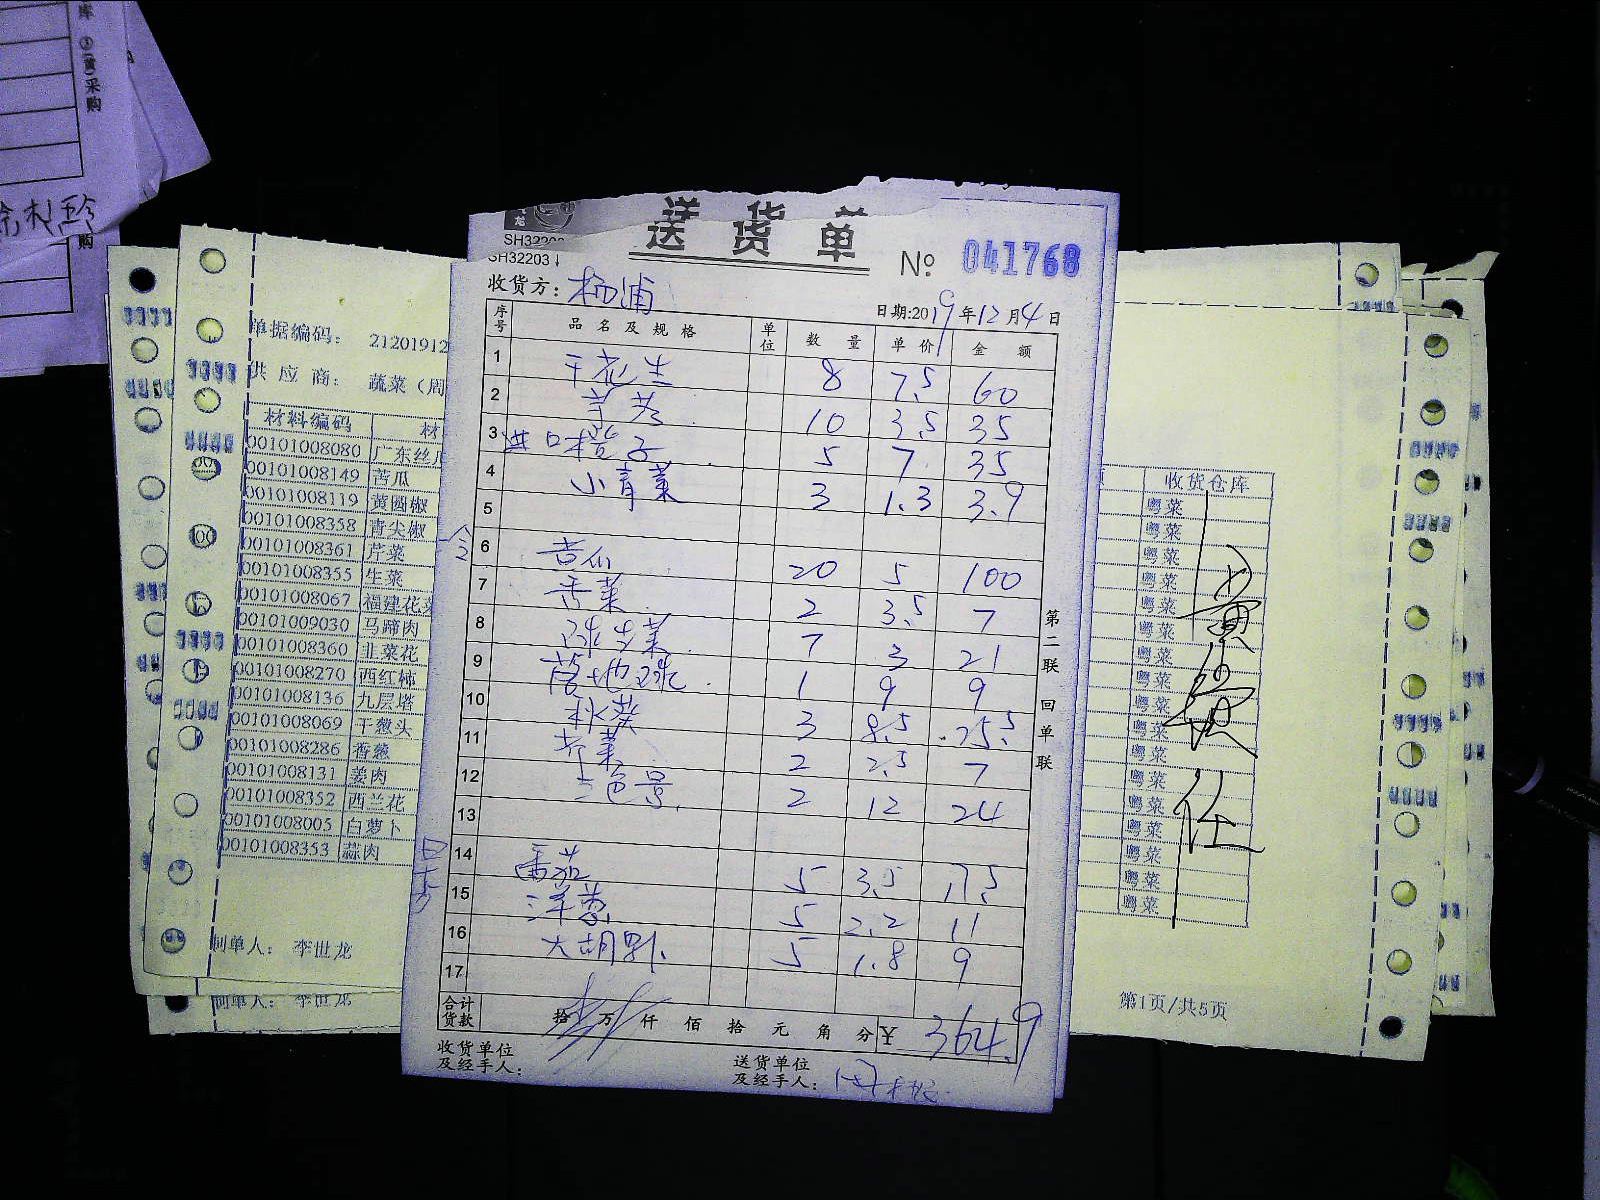 库 ③(黄)采购
购
送货单
SH32203
№ 041768
收货方：杨浦
日期:2019年12月4日
序号 品名及规格 单位 数量 单价 金额
1 干花生 8 7.5 60
2 芋艿 10 3.5 35
3 进口橙子 5 7 35
4 小青菜 3 1.3 3.9
5
6 20 5 100
7 香菜 2 3.5 7
8 球生菜 7 3 21
9 1 9 9
10 3 8.5 25.5
11 芹菜 2 2.5 7
12 三色堇 2 12 24
13
14 番茄 5 3.5 17.5
15 洋葱 5 2.2 11
16 5 1.8 9
17
合计货款 拾 万 仟 佰 拾 元 角 分 ¥ 364.9
收货单位及经手人：
送货单位及经手人：
第二联 回单联
单据编码： 21201912
供应商： 蔬菜（周
材料编码 材
00101008080 广东丝瓜
00101008149 苦瓜
00101008119 黄圆椒
00101008358 青尖椒
00101008361 芹菜
00101008355 生菜
00101008067 福建花菜
00101009030 马蹄肉
00101008360 韭菜花
00101008270 西红柿
00101008136 九层塔
00101008069 干葱头
00101008286 香葱
00101008131 姜肉
00101008352 西兰花
00101008005 白萝卜
00101008353 蒜肉
制单人： 李世龙
制单人： 李世龙
收货仓库
粤菜
粤菜
粤菜
粤菜
粤菜
粤菜
粤菜
粤菜
粤菜
粤菜
粤菜
粤菜
粤菜
粤菜
粤菜
粤菜
粤菜
第1页/共5页